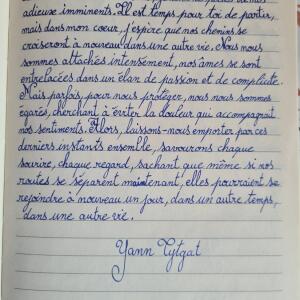 adieux imminents. Il est temps, pour toi de partir,
mais dans mon cœur, j'espère que nos chemins se
croiseront à nouveau dans une autre vie. Nous nous
sommes attachés intensément, nos âmes se sont
entrelacées dans un élan de passion et de complicité.
Mais parfois, pour nous protéger, nous nous sommes
égarés, cherchant à éviter la douleur qui accompagnait
nos sentiments. Alors, laissons-nous emporter par ces
derniers instants ensemble, savourons chaque
sourire, chaque regard, sachant que même si nos
routes se séparent maintenant, elles pourraient se
rejoindre à nouveau un jour, dans un autre temps,
dans une autre vie.
Yann Tytgat